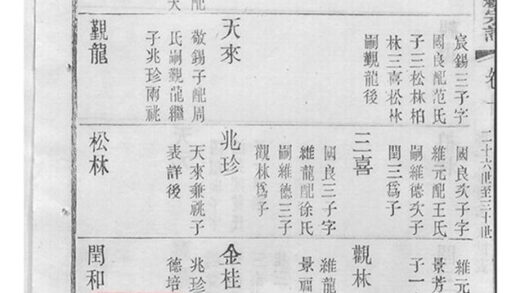 卷
二十六世至三十世
宸錫三子字
國良配范氏
子三松林柏
林三喜松林
嗣覲龍後
天來
敬錫子配周
氏嗣覲龍繼
子兆珍兩祧
覲龍
配
國良次子字
維元配王氏
嗣維德次子
閏三爲子
三喜
國良三子字
維龍配徐氏
嗣維德三子
觀林爲子
兆珍
天來兼祧子
表詳後
松林
維元
景芳
子一
觀林
維龍
景福
金桂
兆珍
德培
閏和